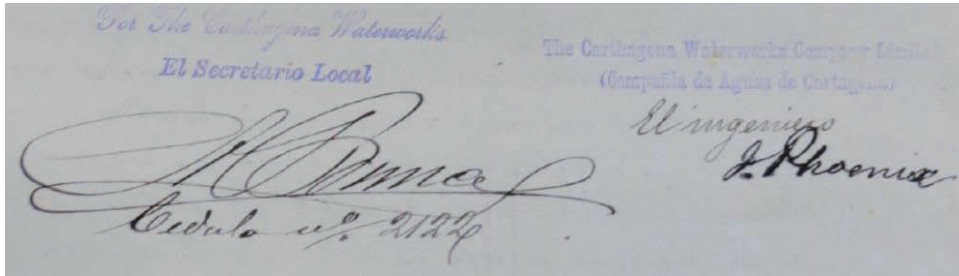 For The Carthagena Waterworks
El Secretario Local
Cédula nº 2122
The Carthagena Waterworks Company Limite
(Compañía de Aguas de Cartagena)
El ingeniero
J. Phoenix